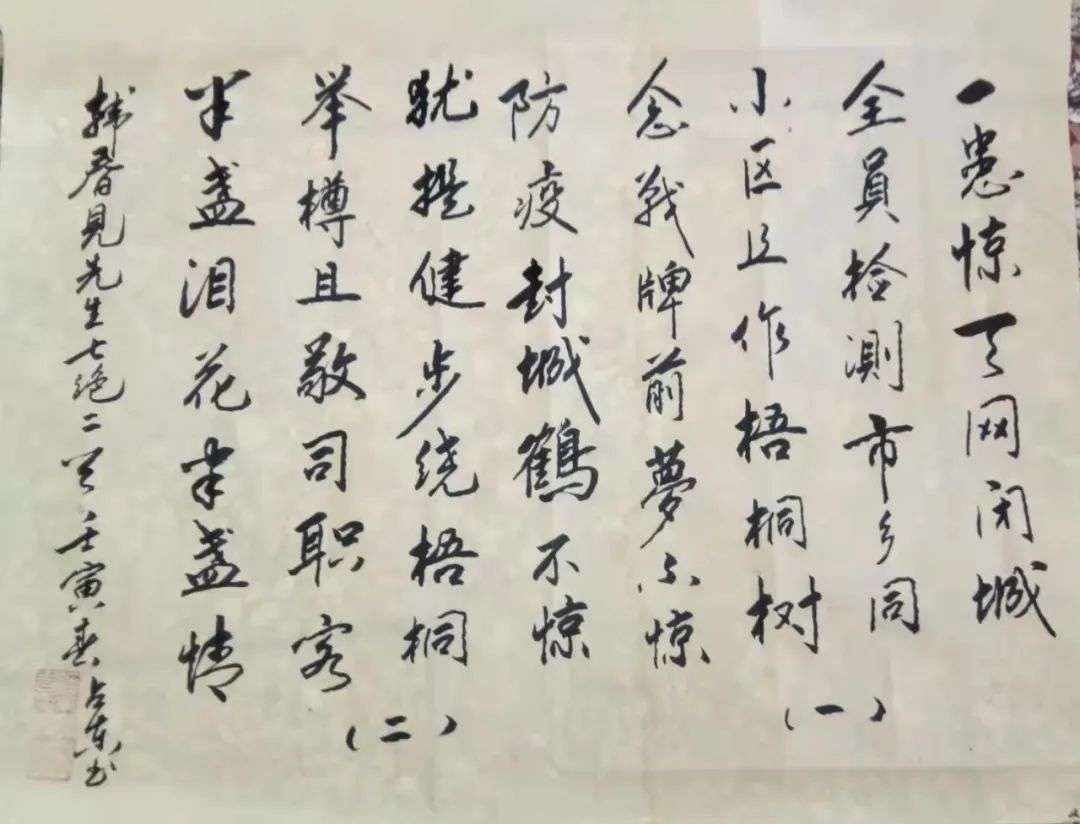 一患惊天网闭城
全員检测市乡同
小区且作梧桐树
（一）
念战牌前夢不惊
防疫封城鶴不惊
犹提健步绕梧桐
举樽且敬司职客
（二）
半盏泪花半盏情
韩春見先生七绝二首壬寅春占东书